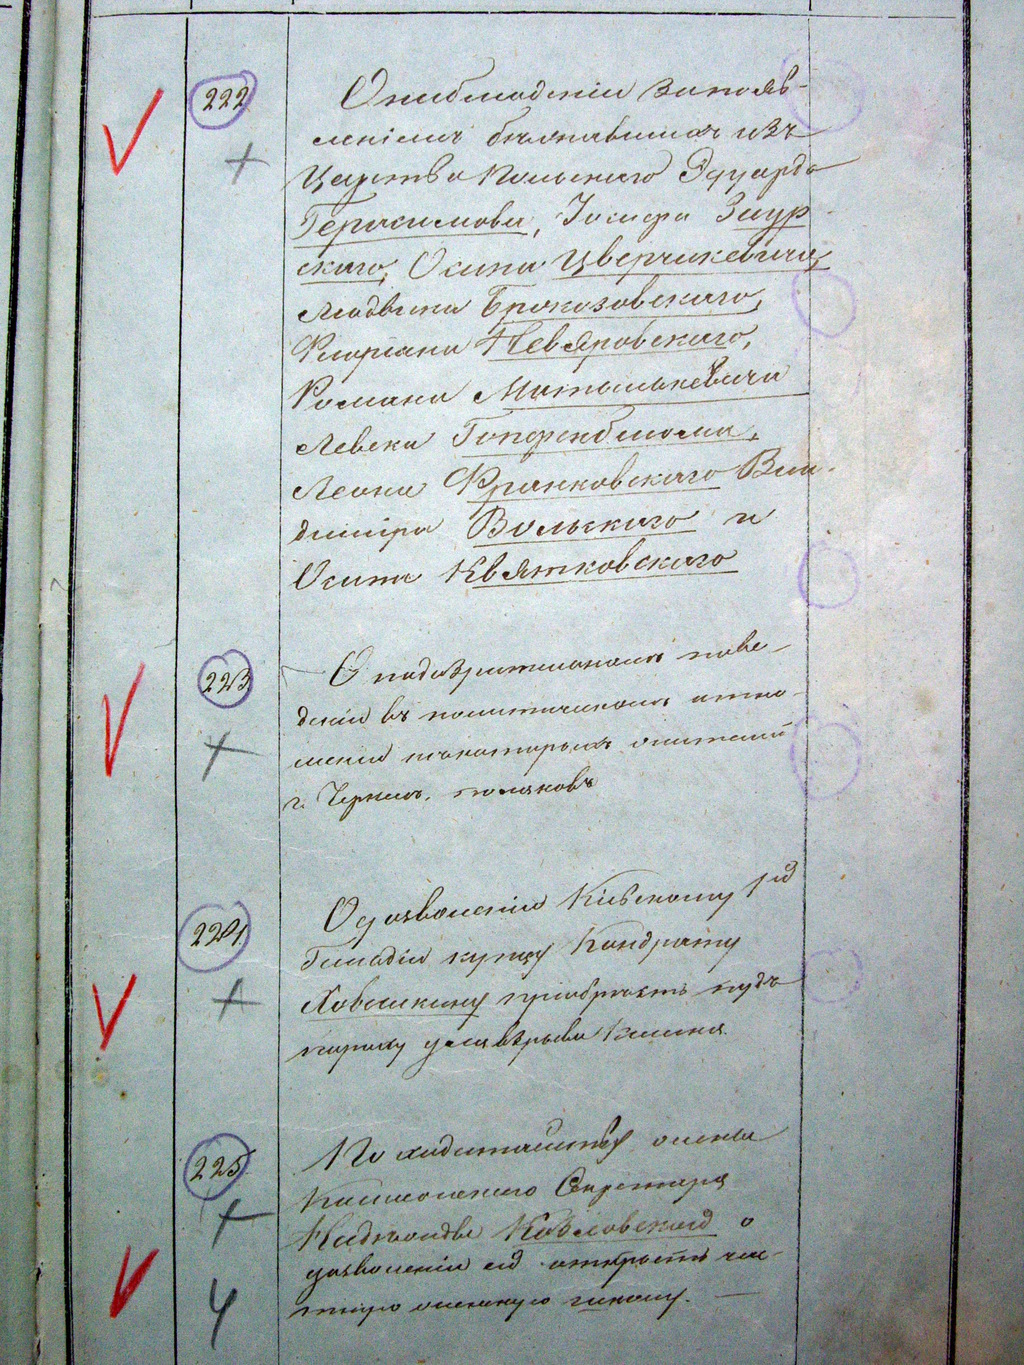 222
О наблюденіи за появ-
леніемъ бежавшихъ изъ
Царства Польскаго Эдуарда
Герасимова, Іосифа Заур
скаго, Осипа Цверчикевича,
Людвика Брокозовскаго,
Флоріана Невяровскаго,
Романа Матушкевича
Левека Гопфенблюма,
Леона Франковскаго Вла-
диміра Вольскаго и
Осипа Квятковскаго
223
О подозрительномъ пове-
деніи въ политическомъ отно-
шеніи некоторыхъ жителей
г. Черкасъ, поляковъ
224
О дозволеніи Кіевскому 1й
Гильдіи купцу Кондрату
Ховалкину пріобресть пудъ
пороху для взрыва камня
225
По ходатайству жены
Коллежскаго Секретаря
Козловской о
дозволеніи ей открыть час-
тную женскую школу.